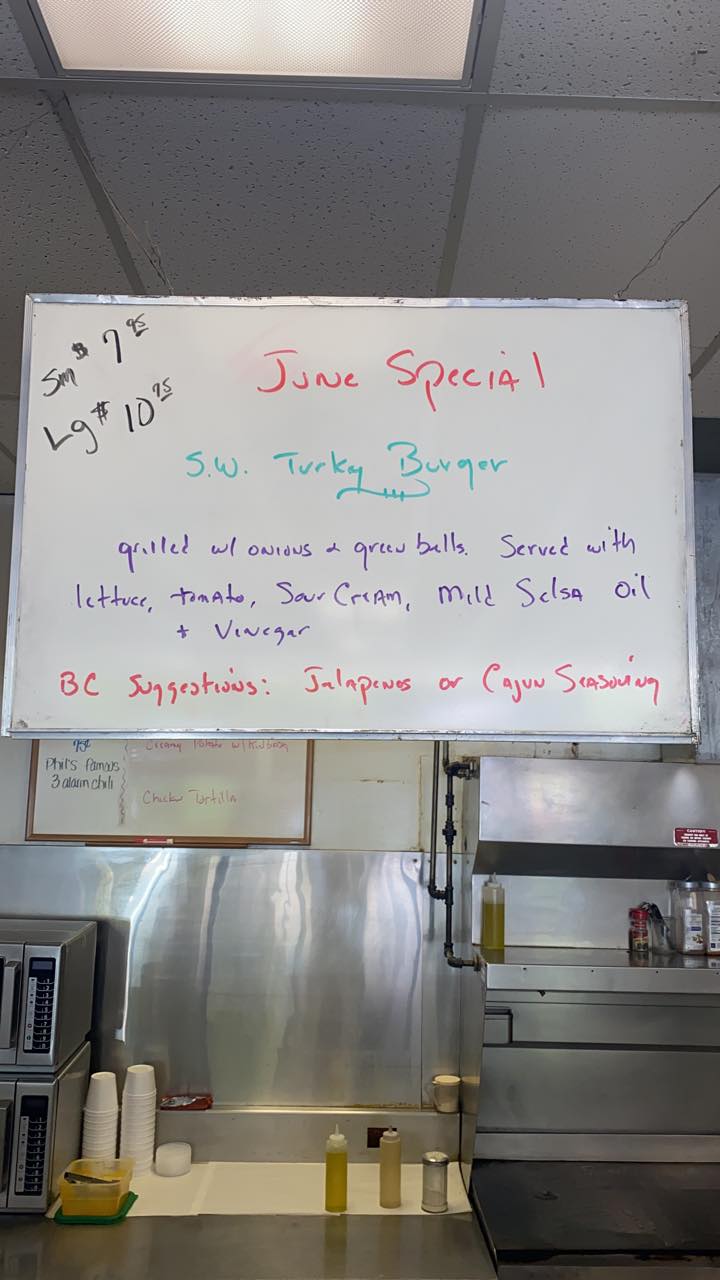 Sm $ 7 95
Lg $ 10 95
June Special
S.W. Turky Burger
grilled w/ onions & green bells. Served with
lettuce, tomato, Sour Cream, Mild Salsa Oil
+ Vinegar
BC Suggestions: Jalapenos or Cajun Seasoning
95¢
Phil's famous
3 alarm chili
Creamy Potato w/
Chicken Tortilla
CAUTION